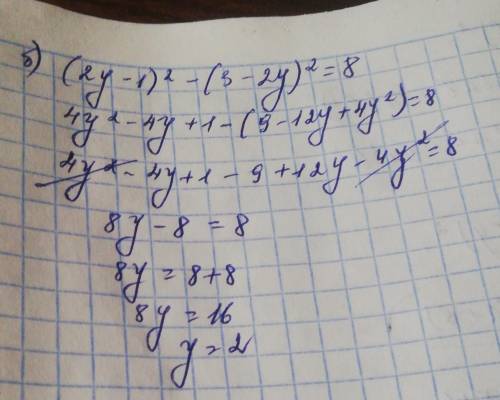 б) (2y - 1)² - (3 - 2y)² = 8
4y² - 4y + 1 - (9 - 12y + 4y²) = 8
4y² - 4y + 1 - 9 + 12y - 4y² = 8
8y - 8 = 8
8y = 8 + 8
8y = 16
y = 2